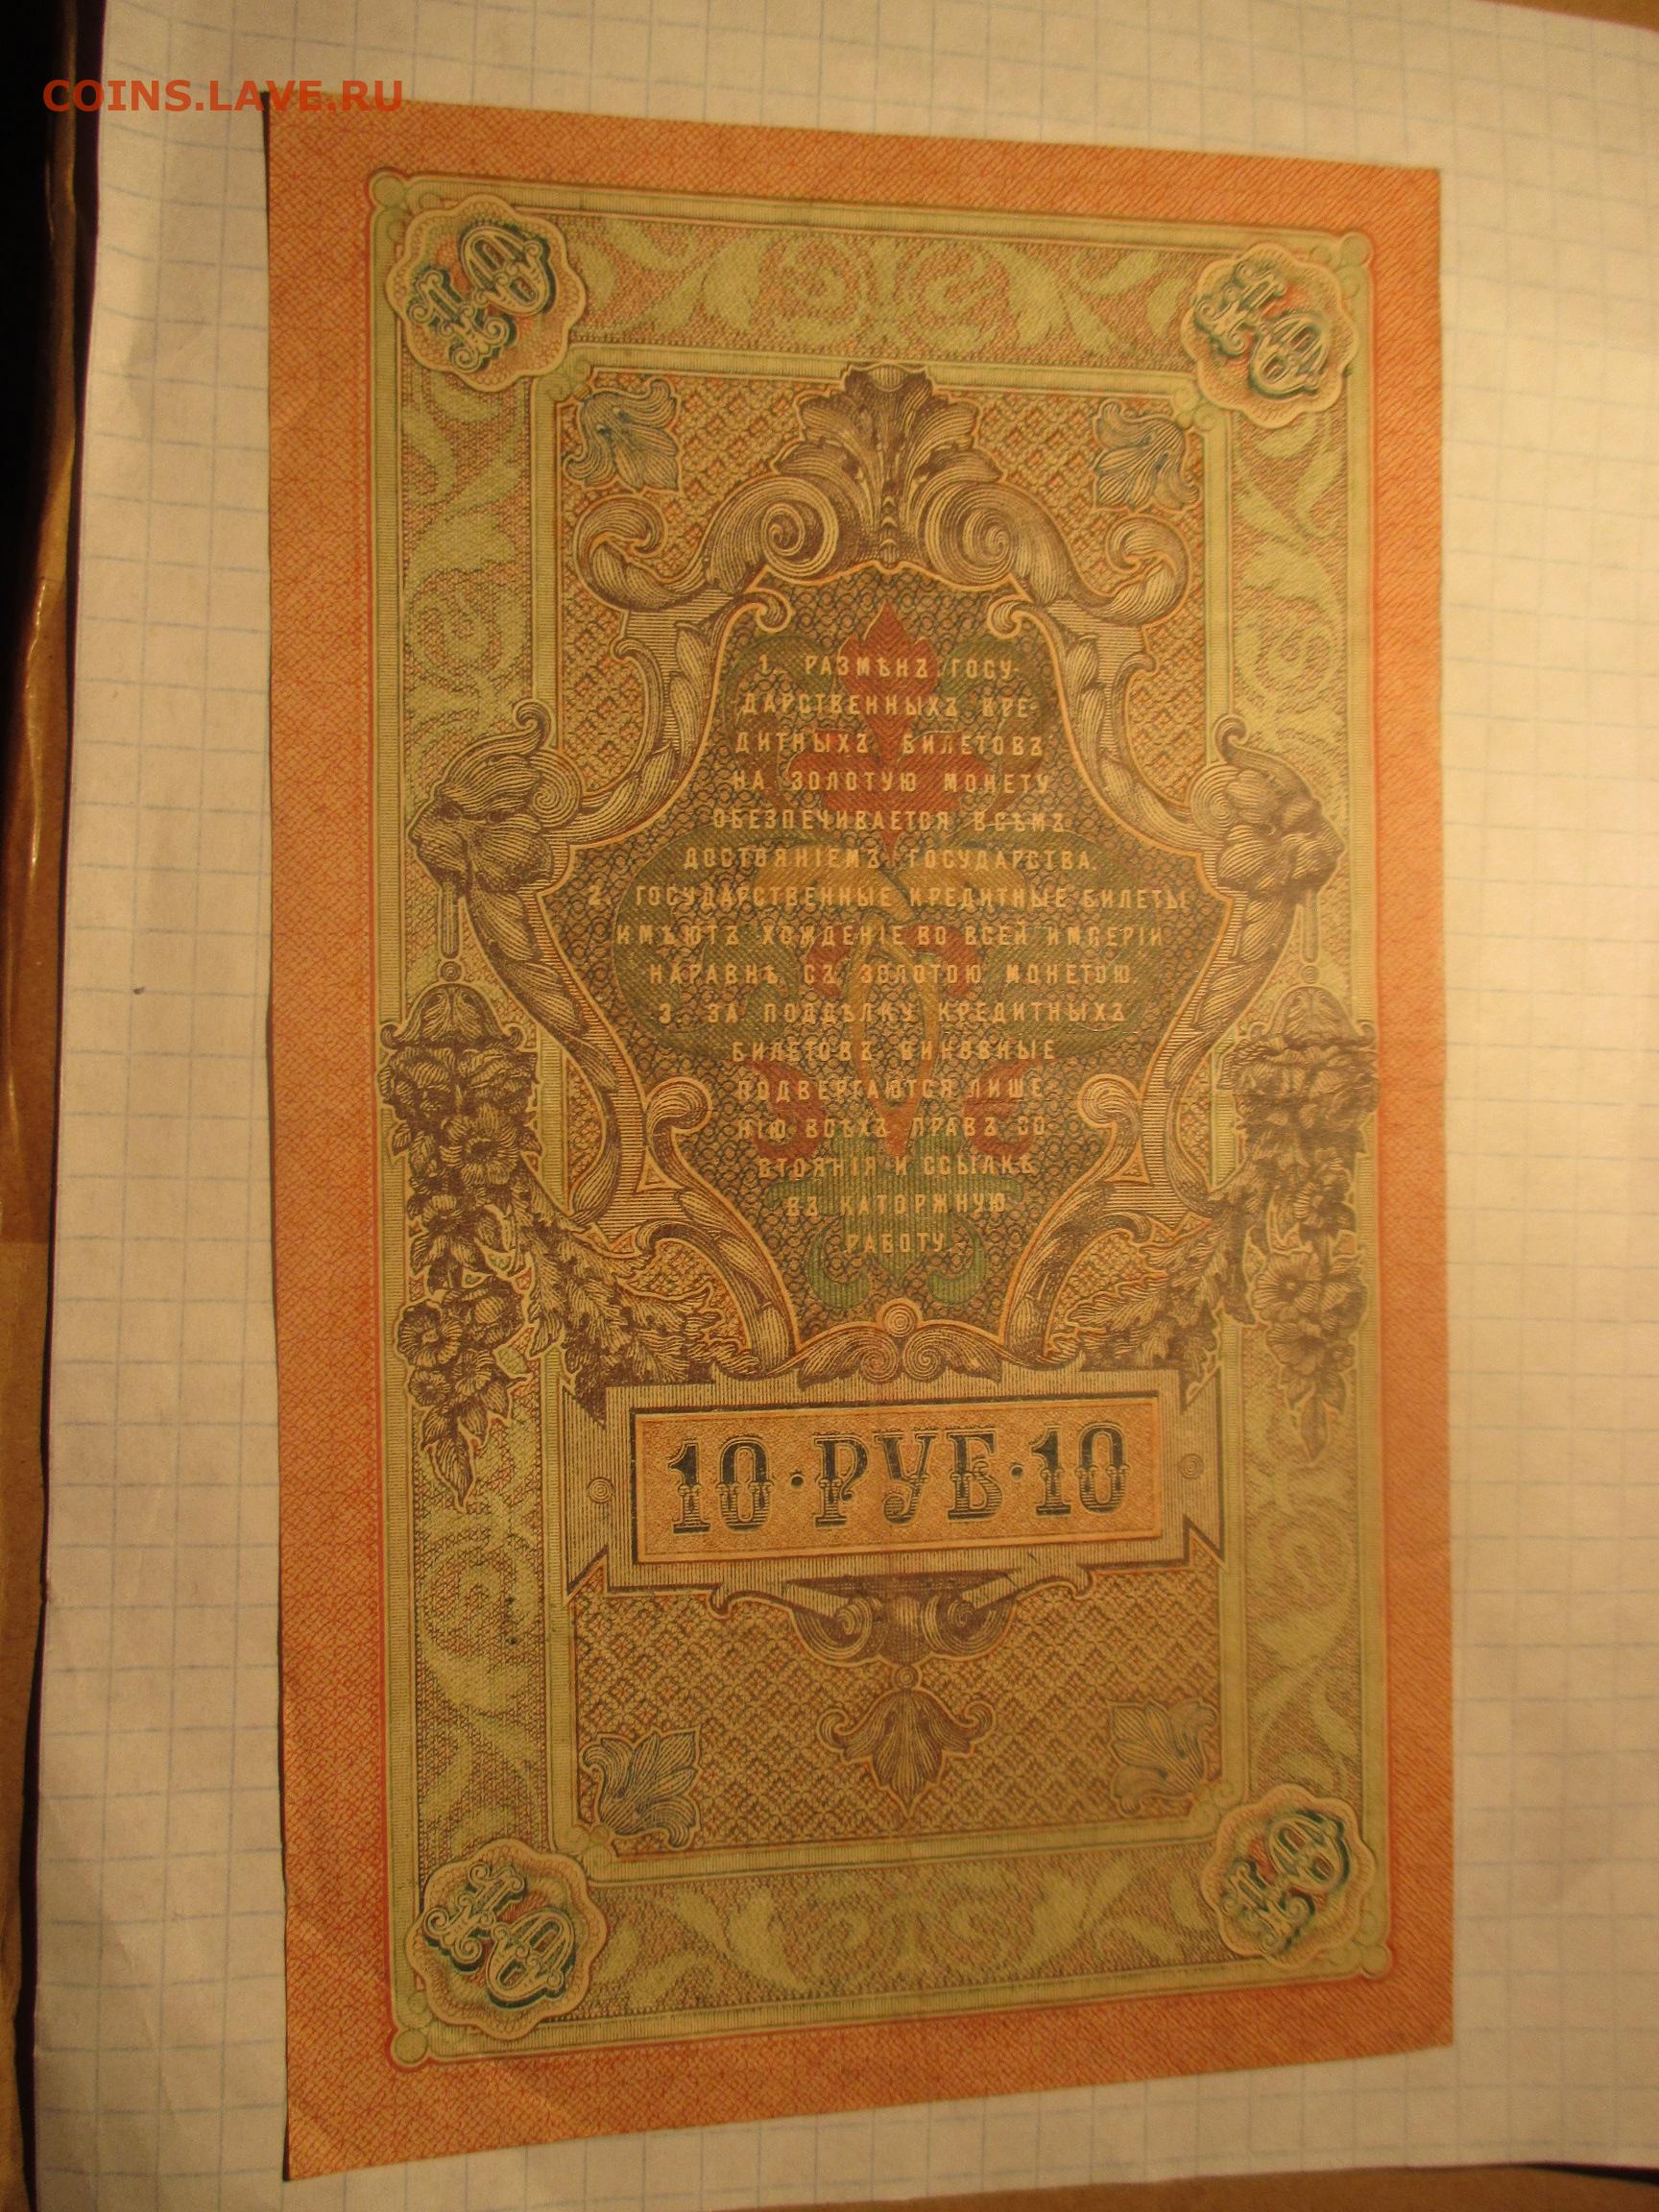 COINS.LAVE.RU
10
10
1. РАЗМѢНЪ ГОСУ-
ДАРСТВЕННЫХЪ КРЕ-
ДИТНЫХЪ БИЛЕТОВЪ
НА ЗОЛОТУЮ МОНЕТУ
ОБЕЗПЕЧИВАЕТСЯ ВСѢМЪ
ДОСТОЯНІЕМЪ ГОСУДАРСТВА.
2. ГОСУДАРСТВЕННЫЕ КРЕДИТНЫЕ БИЛЕТЫ
ИМѢЮТЪ ХОЖДЕНІЕ ВО ВСЕЙ ИМПЕРІИ
НАРАВНѢ СЪ ЗОЛОТОЮ МОНЕТОЮ.
3. ЗА ПОДДѢЛКУ КРЕДИТНЫХЪ
БИЛЕТОВЪ ВИНОВНЫЕ
ПОДВЕРГАЮТСЯ ЛИШЕ-
НІЮ ВСѢХЪ ПРАВЪ СО-
СТОЯНІЯ И ССЫЛКѢ
ВЪ КАТОРЖНУЮ
РАБОТУ.
10·РУБ·10
10
10